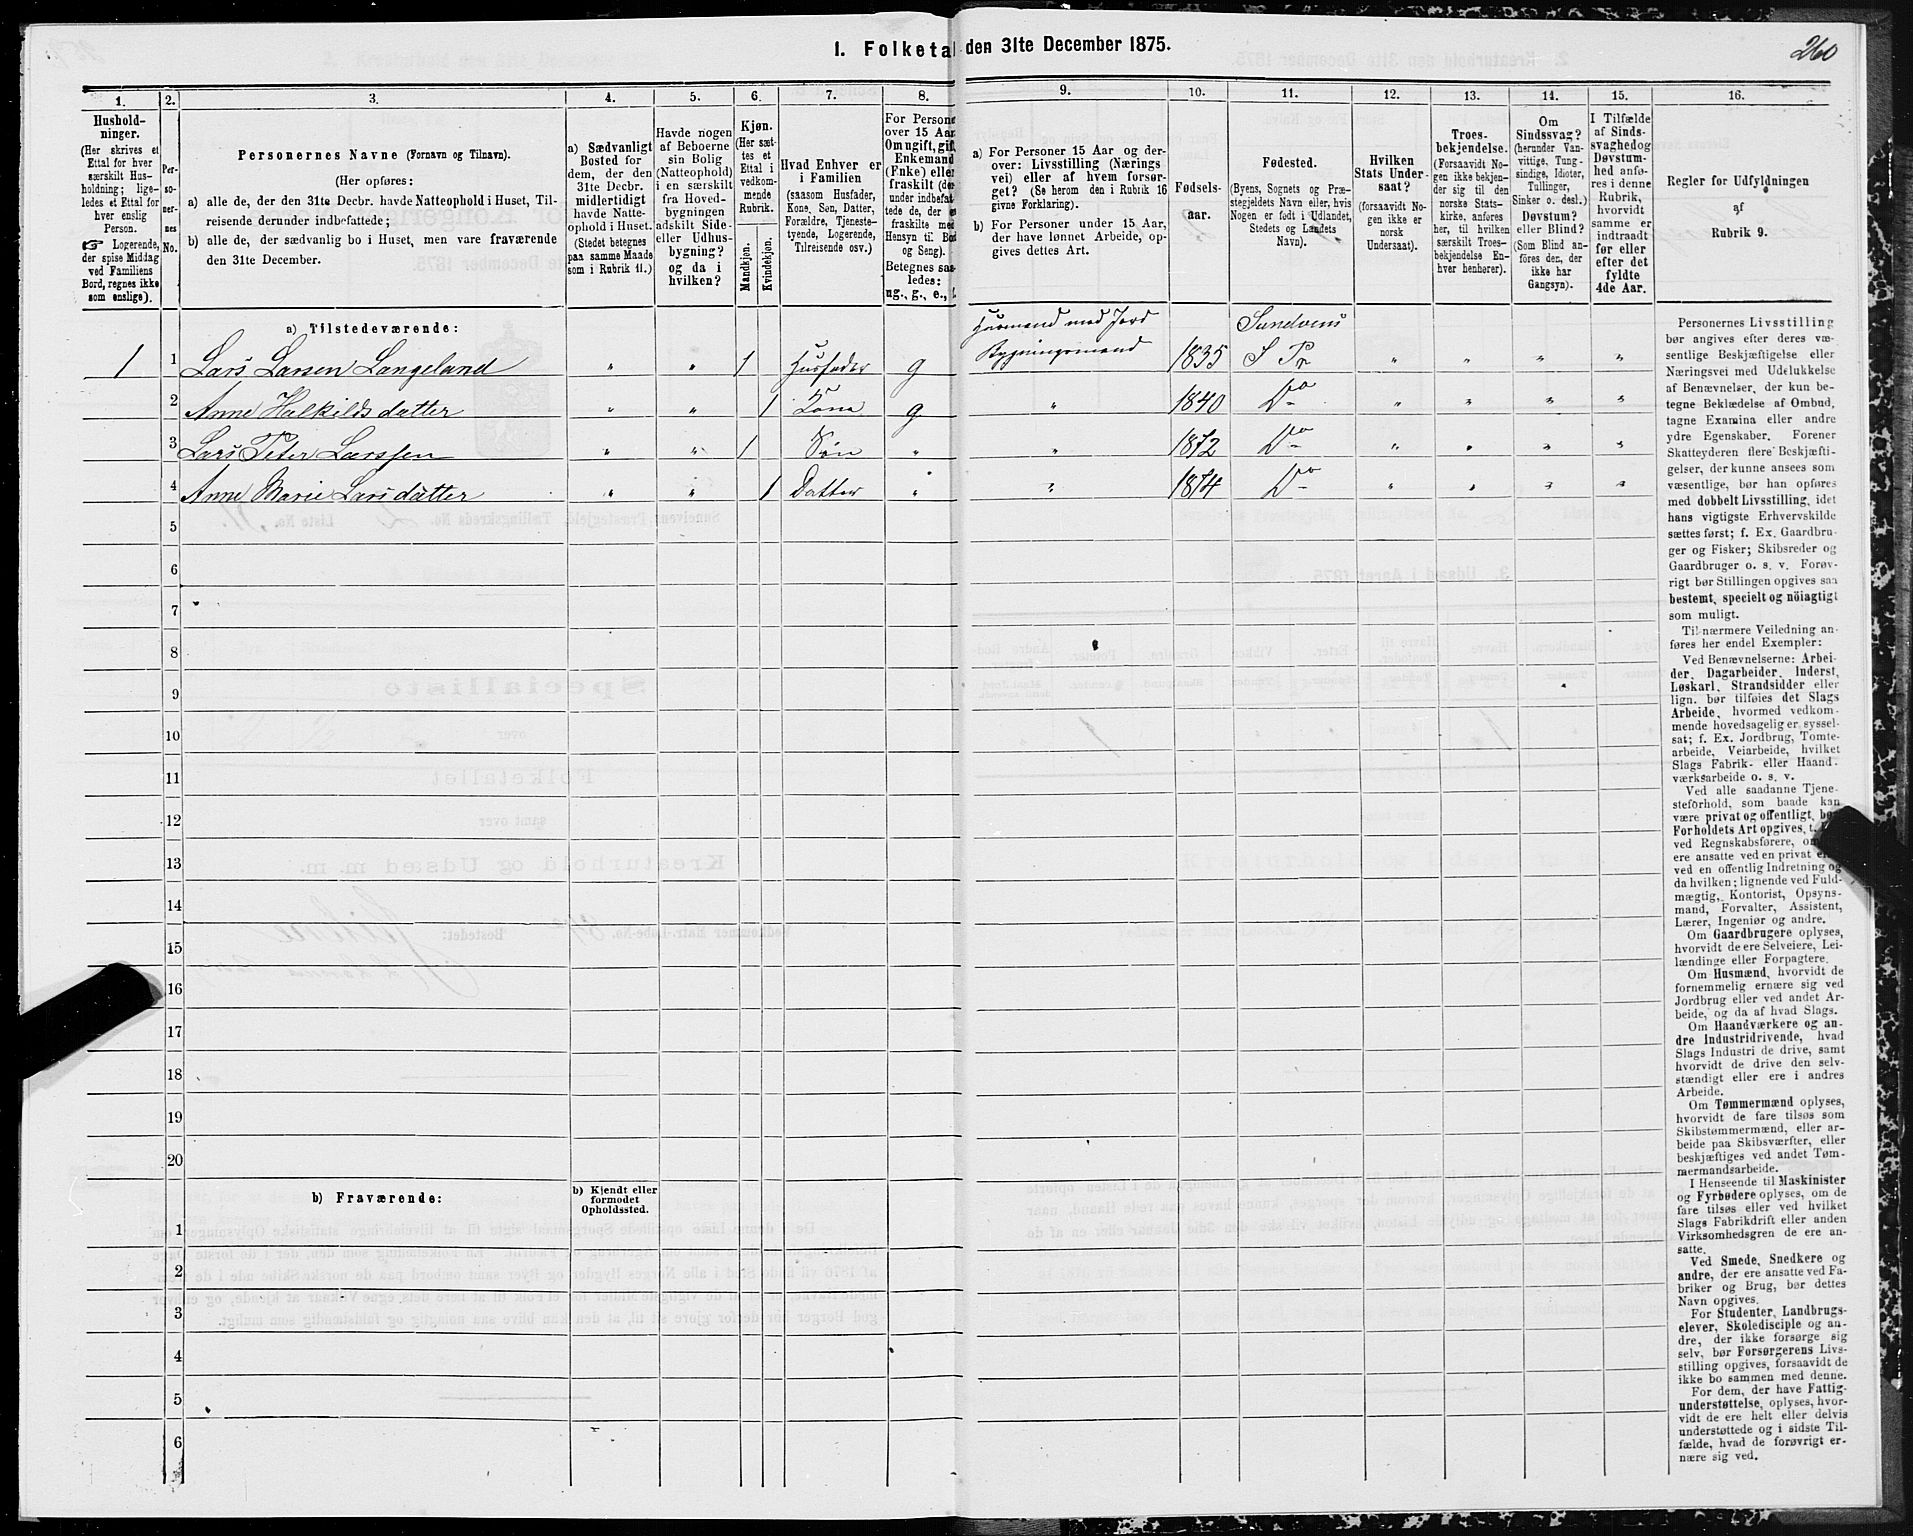 260
1. Folketal den 31te December 1875.
1.
2.
3.
4.
5.
6.
7.
8.
9.
10.
11.
12.
13.
14.
15.
16.
Hushold-
ninger.
(Her skrives et
Ettal for hver
særskilt Hus-
holdning; lige-
ledes et Ettal for
hver enslig
Person.
☞ Logerende,
der spise Middag
ved Familiens
Bord, regnes ikke
som enslige).
Per-
so-
ner-
nes
No.
Personernes Navne (Fornavn og Tilnavn).
(Her opføres:
a) alle de, der den 31te Decbr. havde Natteophold i Huset, Til-
reisende derunder indbefattede;
b) alle de, der sædvanlig bo i Huset, men vare fraværende
den 31te December.
a) Sædvanligt
Bosted for
dem, der den
31te Decbr.
midlertidigt
havde Natte-
ophold i Huset.
(Stedet betegnes
paa samme Maade
som i Rubrik 11.)
Havde nogen
af Beboerne
sin Bolig
(Natteophold)
i en særskilt
fra Hoved-
bygningen
adskilt Side-
eller Udhus-
bygning?
og da i
hvilken?
Kjøn.
(Her sæt-
tes et
Ettal i
vedkom-
mende
Rubrik.
Mandkjøn.
Kvindekjøn.
Hvad Enhver er
i Familien
(saasom Husfader,
Kone, Søn, Datter,
Forældre, Tjeneste-
tyende, Logerende,
Tilreisende osv.)
For Persone
over 15 Aar
Om ugift, gift
Enkemand
(Enke) eller
fraskilt (der
under indbefat-
tede de, der e
fraskilte med
Hensyn til Bo
og Seng).
Betegnes saa-
ledes:
ug., g., e.,
a) For Personer 15 Aar og der-
over: Livsstilling (Nærings
vei) eller af hvem forsør-
get? (Se herom den i Rubrik 16
givne Forklaring).
b) For Personer under 15 Aar,
der have lønnet Arbeide, op-
gives dettes Art.
Fødsels-
aar.
Fødested.
(Byens, Sognets og Præ-
stegjeldets Navn eller, hvis
Nogen er født i Udlandet,
Stedets og Landets
Navn).
Hvilken
Stats Under-
saat?
(forsaavidt No-
gen ikke er
norsk
Undersaat).
Troes-
bekjendelse.
(Forsaavidt No-
gen ikke bekjen-
der sig til den
norske Stats-
kirke, anføres
her, til hvilken
særskilt Troes-
bekjendelse En-
hver henhører).
Om
Sindssvag?
(herunder Van-
vittige, Tung-
sindige, Idioter,
Tullinger,
Sinker o. desl.)
Døvstum?
eller Blind?
(Som Blind an-
føres den, der
ikke har
Gangsyn).
I Tilfælde
af Sinds-
svaghed og
Døvstum-
hed anfø-
res i denne
Rubrik,
hvorvidt
samme er
indtraadt
før eller
efter det
fyldte
4de Aar.
Regler for Udfyldningen
af
Rubrik 9.
a) Tilstedeværende:
Husmand med Jord Sundvens
1 1 Lars Larsen Langeland " " 1 Husfader g Bygningsmand 1835 S Pr " " " "
2 Anne Halkildsdatter " " 1 Kone g " 1840 Do " " " "
3 Lars Peter Larssen " " 1 Søn " " 1872 Do " " " "
4 Anne Marie Larsdatter " " 1 Datter " " 1874 Do " " " "
5
6
7
8
9
10
11
12
13
14
15
16
17
18
19
20
b) Fraværende:
b) Kjendt eller
formodet
Opholdssted.
1
2
3
4
5
6
Personernes Livsstilling
bør angives efter deres væ-
sentlige Beskjæftigelse eller
Næringsvei med Udelukkelse
af Benævnelser, der kun be-
tegne Beklædelse af Ombud,
tagne Examina eller andre
ydre Egenskaber. Forener
Skatteyderen flere Beskjæfti-
gelser, der kunne ansees som
væsentlige, bør han opføres
med dobbelt Livsstilling, idet
hans vigtigste Erhvervskilde
sættes først; f. Ex. Gaardbru-
ger og Fisker; Skibsreder og
Gaardbruger o. s. v. Forøv-
rigt bør Stillingen opgives saa
bestemt, specielt og nöiagtigt
som muligt.
Til nærmere Veiledning an-
føres her endel Exempler:
Ved Benævnelserne: Arbei-
der, Dagarbeider, Inderst,
Løskarl, Strandsidder eller
lign. bør tilføies det Slags
Arbeide, hvormed vedkom-
mende hovedsagelig er syssel-
sat; f. Ex. Jordbrug, Tomte-
arbeide, Veiarbeide, hvilket
Slags Fabrik- eller Haand-
værksarbeide o. s. v.
Ved alle saadanne Tjene-
steforhold, som baade kan
være privat og offentligt, bør
Forholdets Art opgives, t.
ved Regnskabsførere, om
ere ansatte ved en privat el
ved en offentlig Indretning og
da hvilken; lignende ved Fuld-
mægtig, Kontorist, Opsyns-
mand, Forvalter, Assistent,
Lærer, Ingeniør og andre.
Om Gaardbrugere oplyses,
hvorvidt de ere Selveiere, Lei-
lændinge eller Forpagtere.
Om Husmænd, hvorvidt de
fornemmelig ernære sig ved
Jordbrug eller ved andet Ar-
beide, og da af hvad Slags.
Om Haandværkere og an-
dre Industridrivende, hvad
Slags Industri de drive, samt
hvorvidt de drive den selv-
stændigt eller ere i andres
Arbeide.
Om Tømmermænd oplyses,
hvorvidt de fare tilsøs som
Skibstømmermænd, eller ar-
beide paa Skibsværfter, eller
beskjæftiges ved andet Tøm-
mermandsarbeide.
I Henseende til Maskinister
og Fyrbødere oplyses, om de
fare tilsøs eller ved hvilket
Slags Fabrikdrift eller anden
Virksomhedsgren de ere an-
satte.
Ved Smede, Snedkere og
andre, der ere ansatte ved Fa-
briker og Brug, bør dettes
Navn opgives.
For Studenter, Landbrugs-
elever, Skoledisciple og an-
dre, der ikke forsørge sig
selv, bør Forsørgerens Livs-
stilling opgives, forsaavidt de
ikke bo sammen med denne.
For dem, der have Fattig-
understøttelse, oplyses, hvor-
vidt de ere helt eller delvis
understøttede og i sidste Til-
fælde, hvad de forøvrigt er-
nære sig ved.